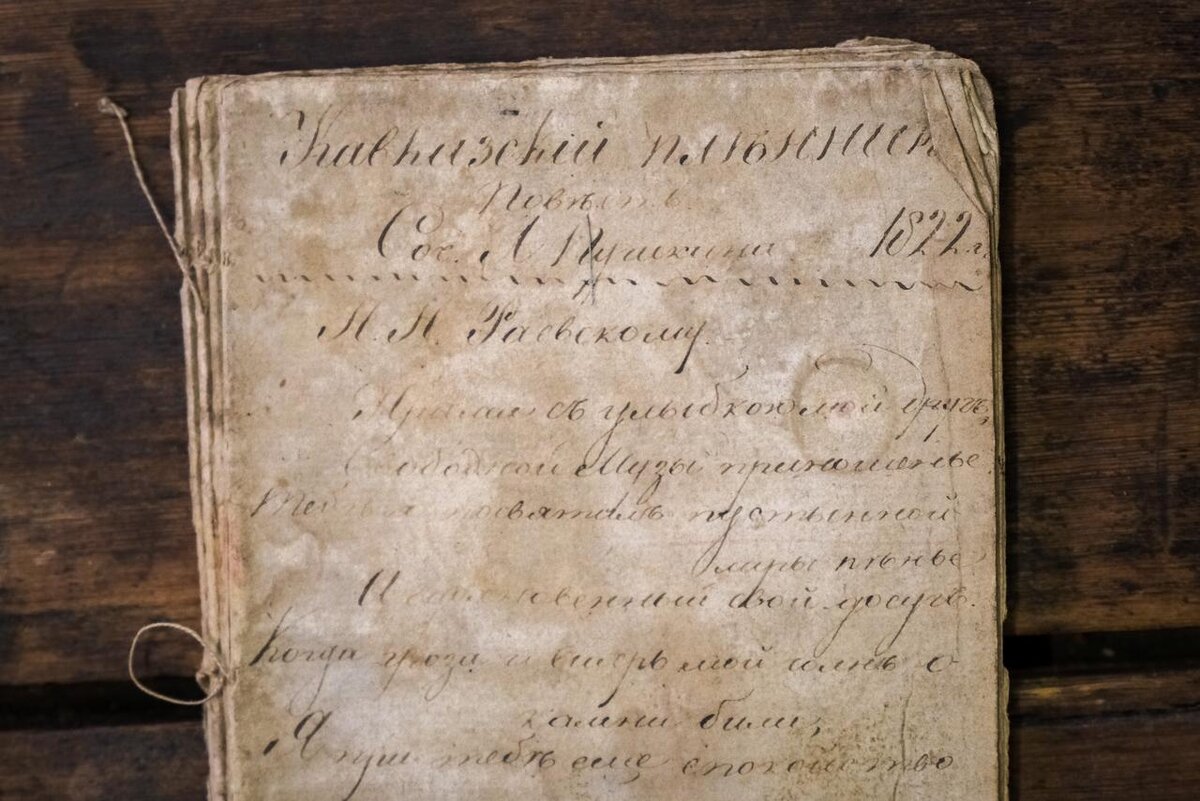 Кавказскій плѣнникъ
Повѣсть
Соч. А Пушкина 1822 г.
Н. Н. Раевскому.
съ улыбкою мой другъ,
Свободной Музы приношенье.
Тебѣ я посвятилъ пустынной
лиры пѣнье
И вдохновенный свой досугъ.
Когда гроза и вѣтеръ мой челнъ о
камни били,
Я при тебѣ еще спокойство